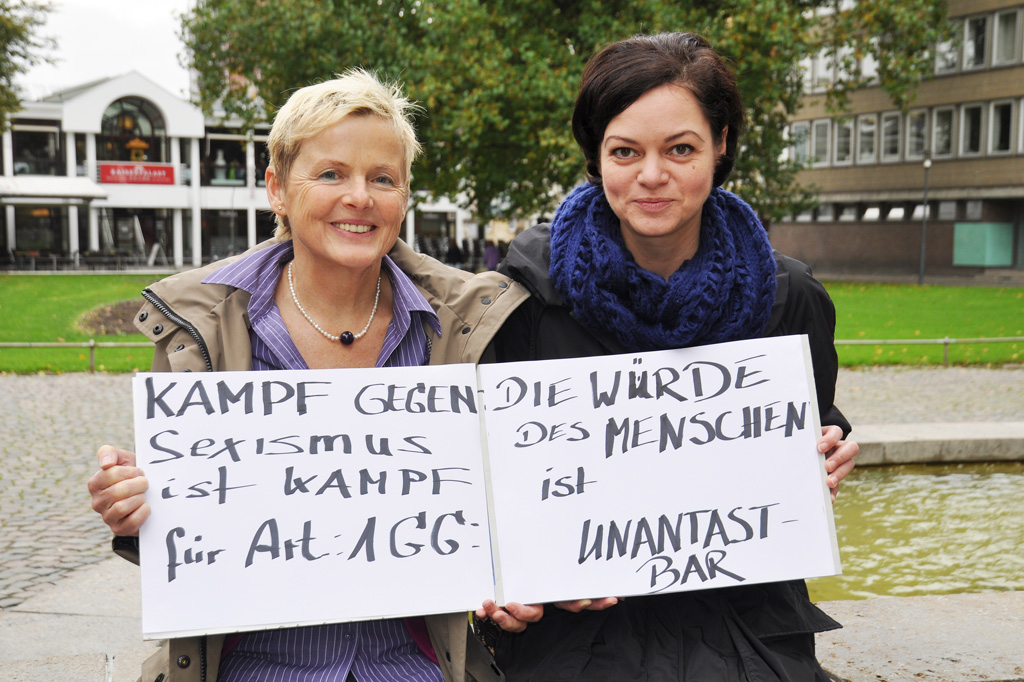 KAMPF GEGEN
Sexismus
ist KAMPF
für Art: 1 GG:
DIE WÜRDE
DES MENSCHEN
ist
UNANTAST-
BAR